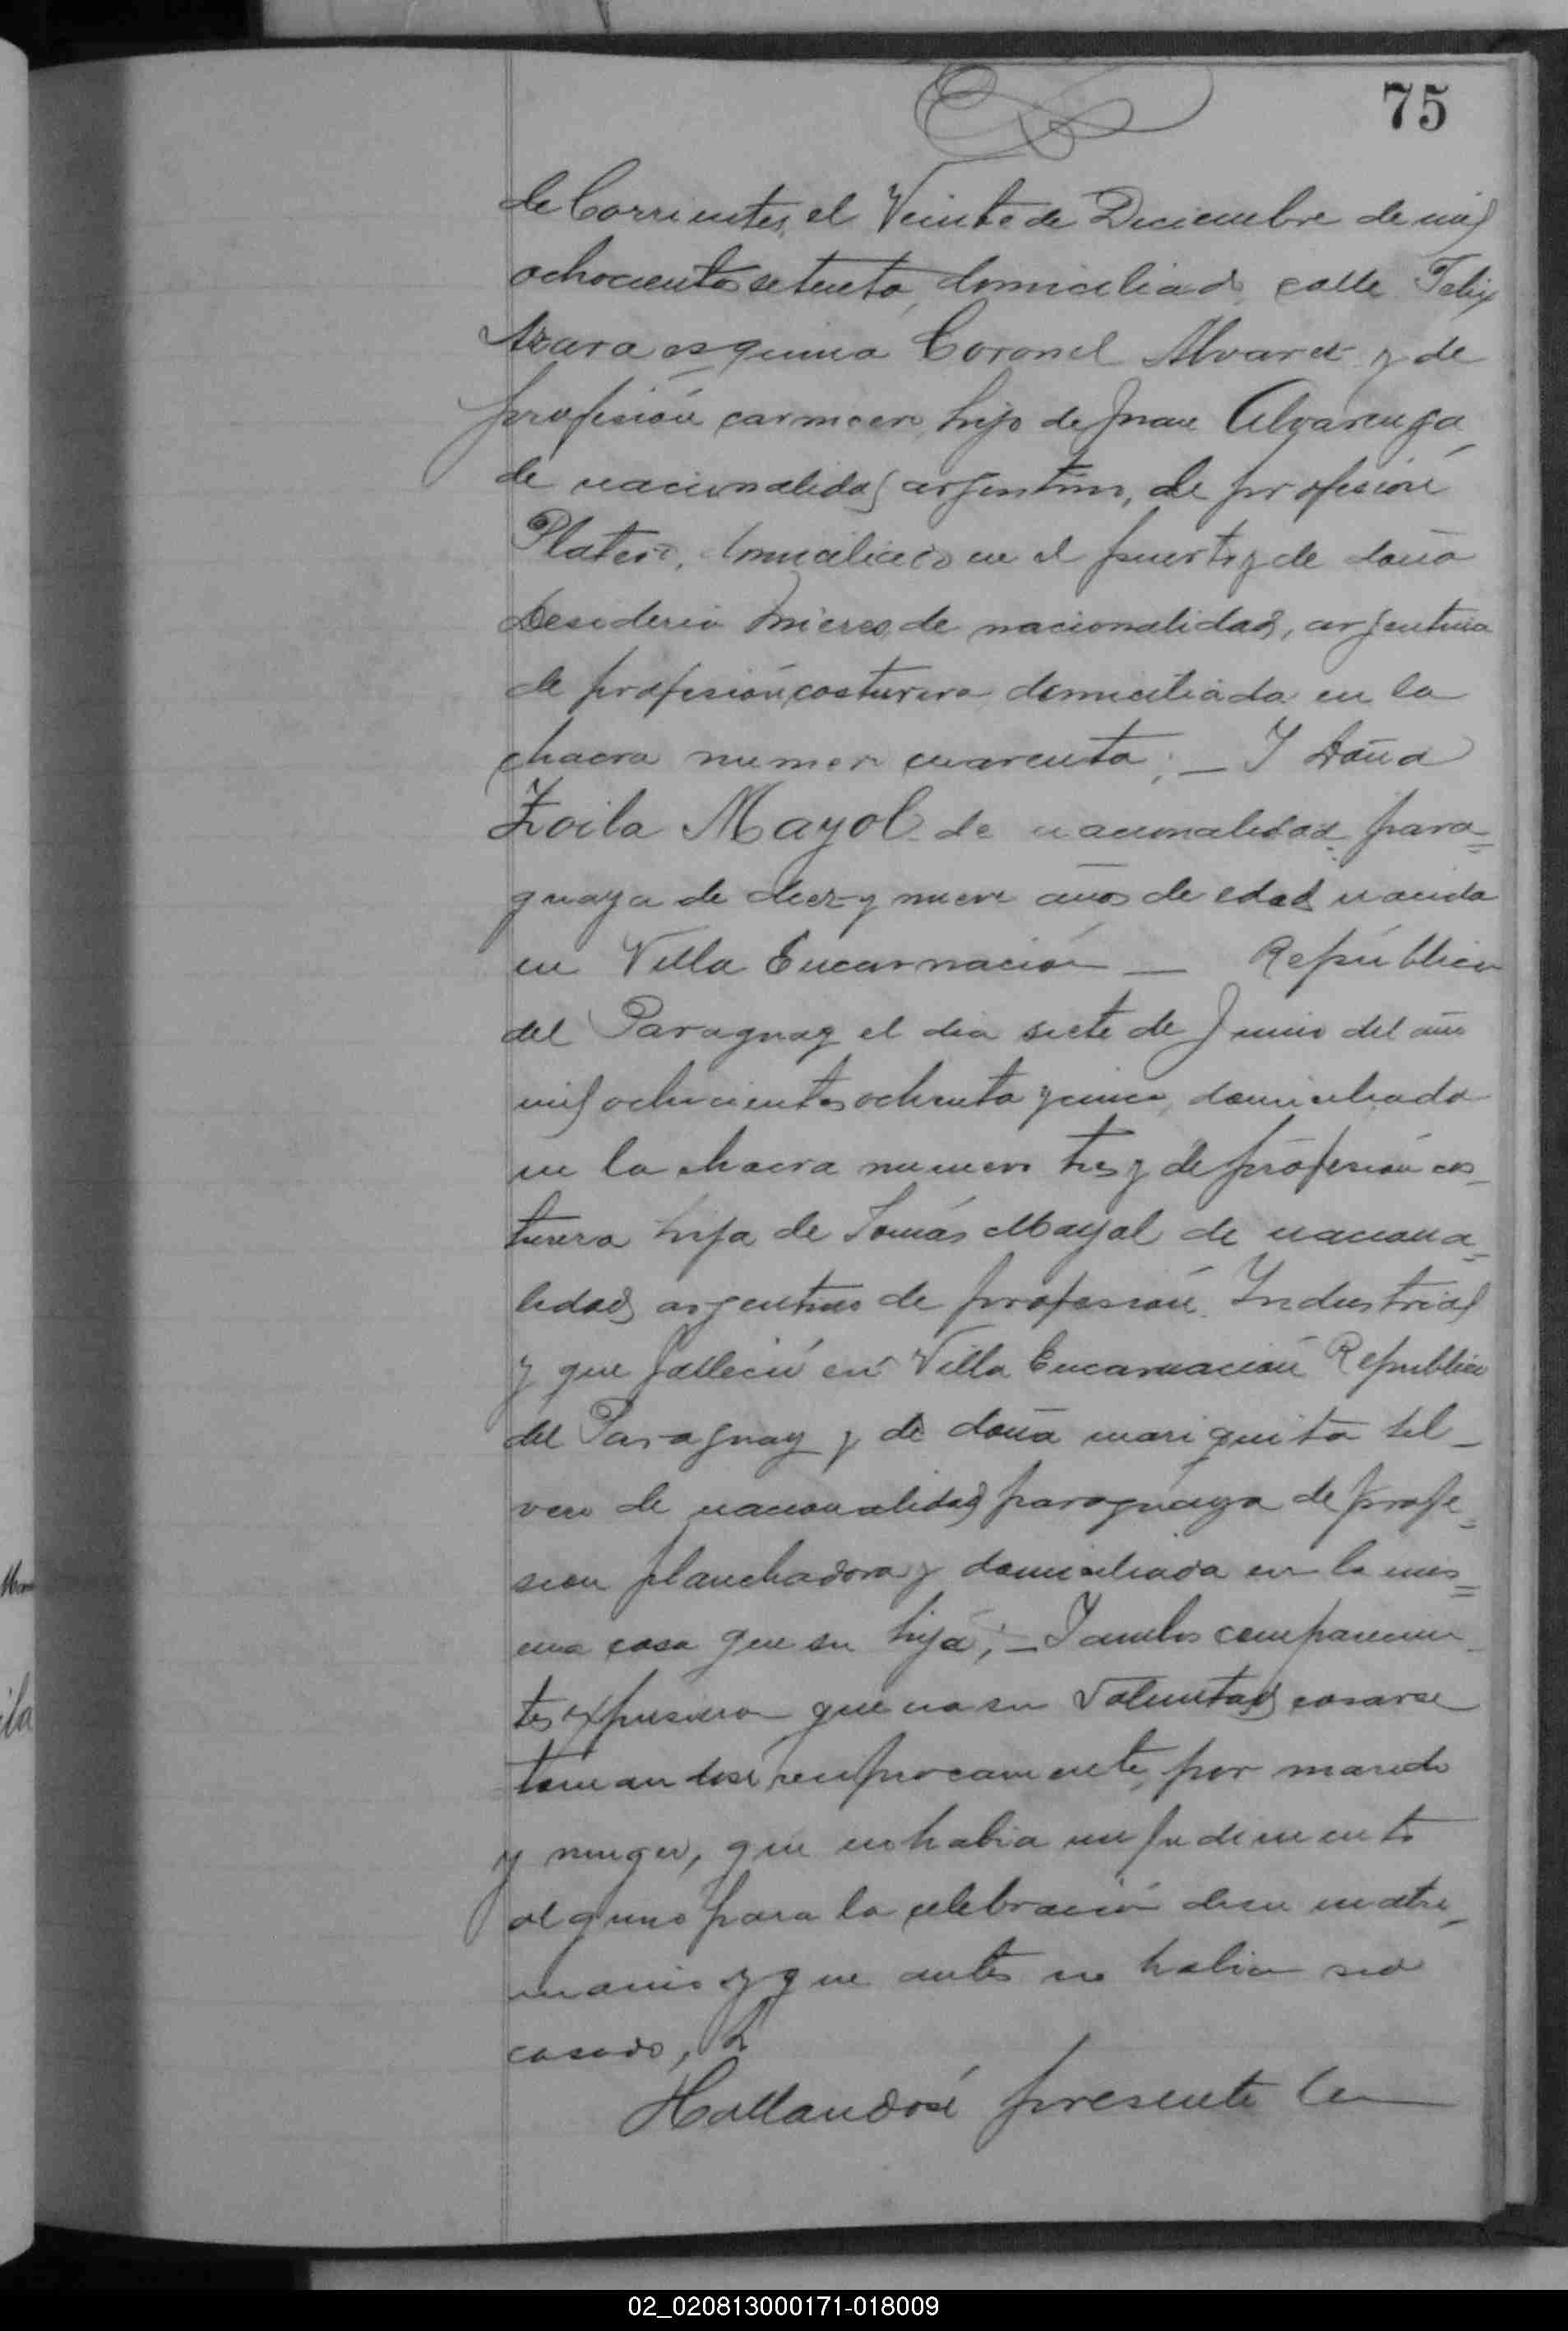 75
de Corrientes, el Veinte de Diciembre de mil
ochocientos setenta, domiciliado calle Felix
Azara esquina Coronel Alvarez y de
profesión carnicero, hijo de Juan Alvarenga
de nacionalidad argentino, de profesión
Platero, domiciliado en el puerto y de doña
Desideria Mieres, de nacionalidad, argentina
de profesión, costurera domiciliada en la
chacra numero cuarenta; — Y Doña
Zoila Mayol de nacionalidad para=
guaya de diez y nueve años de edad nacida
en Villa Encarnación — República
del Paraguay el dia siete de Junio del año
mil ochocientos ochenta y cinco, domiciliada
en la chacra numero tres y de profesión cos_
turera hija de Tomás Mayol de naciona=
lidad argentino de profesión Industrial
y que falleció en Villa Encarnación República
del Paraguay y de doña mariquita Sil_
vero de nacionalidad paraguaya de profe=
sion planchadora y domiciliada en la mis=
ma casa que su hija; — Y ambos comparecien_
tes expusieron que era su Voluntad casarse
tomandose reciprocamente, por marido
y muger, que no habia impedimento
alguno para la celebración de su matri_
monio y que antes no habian sido
casado,
Hallandosé presente la
02_020813000171-018009